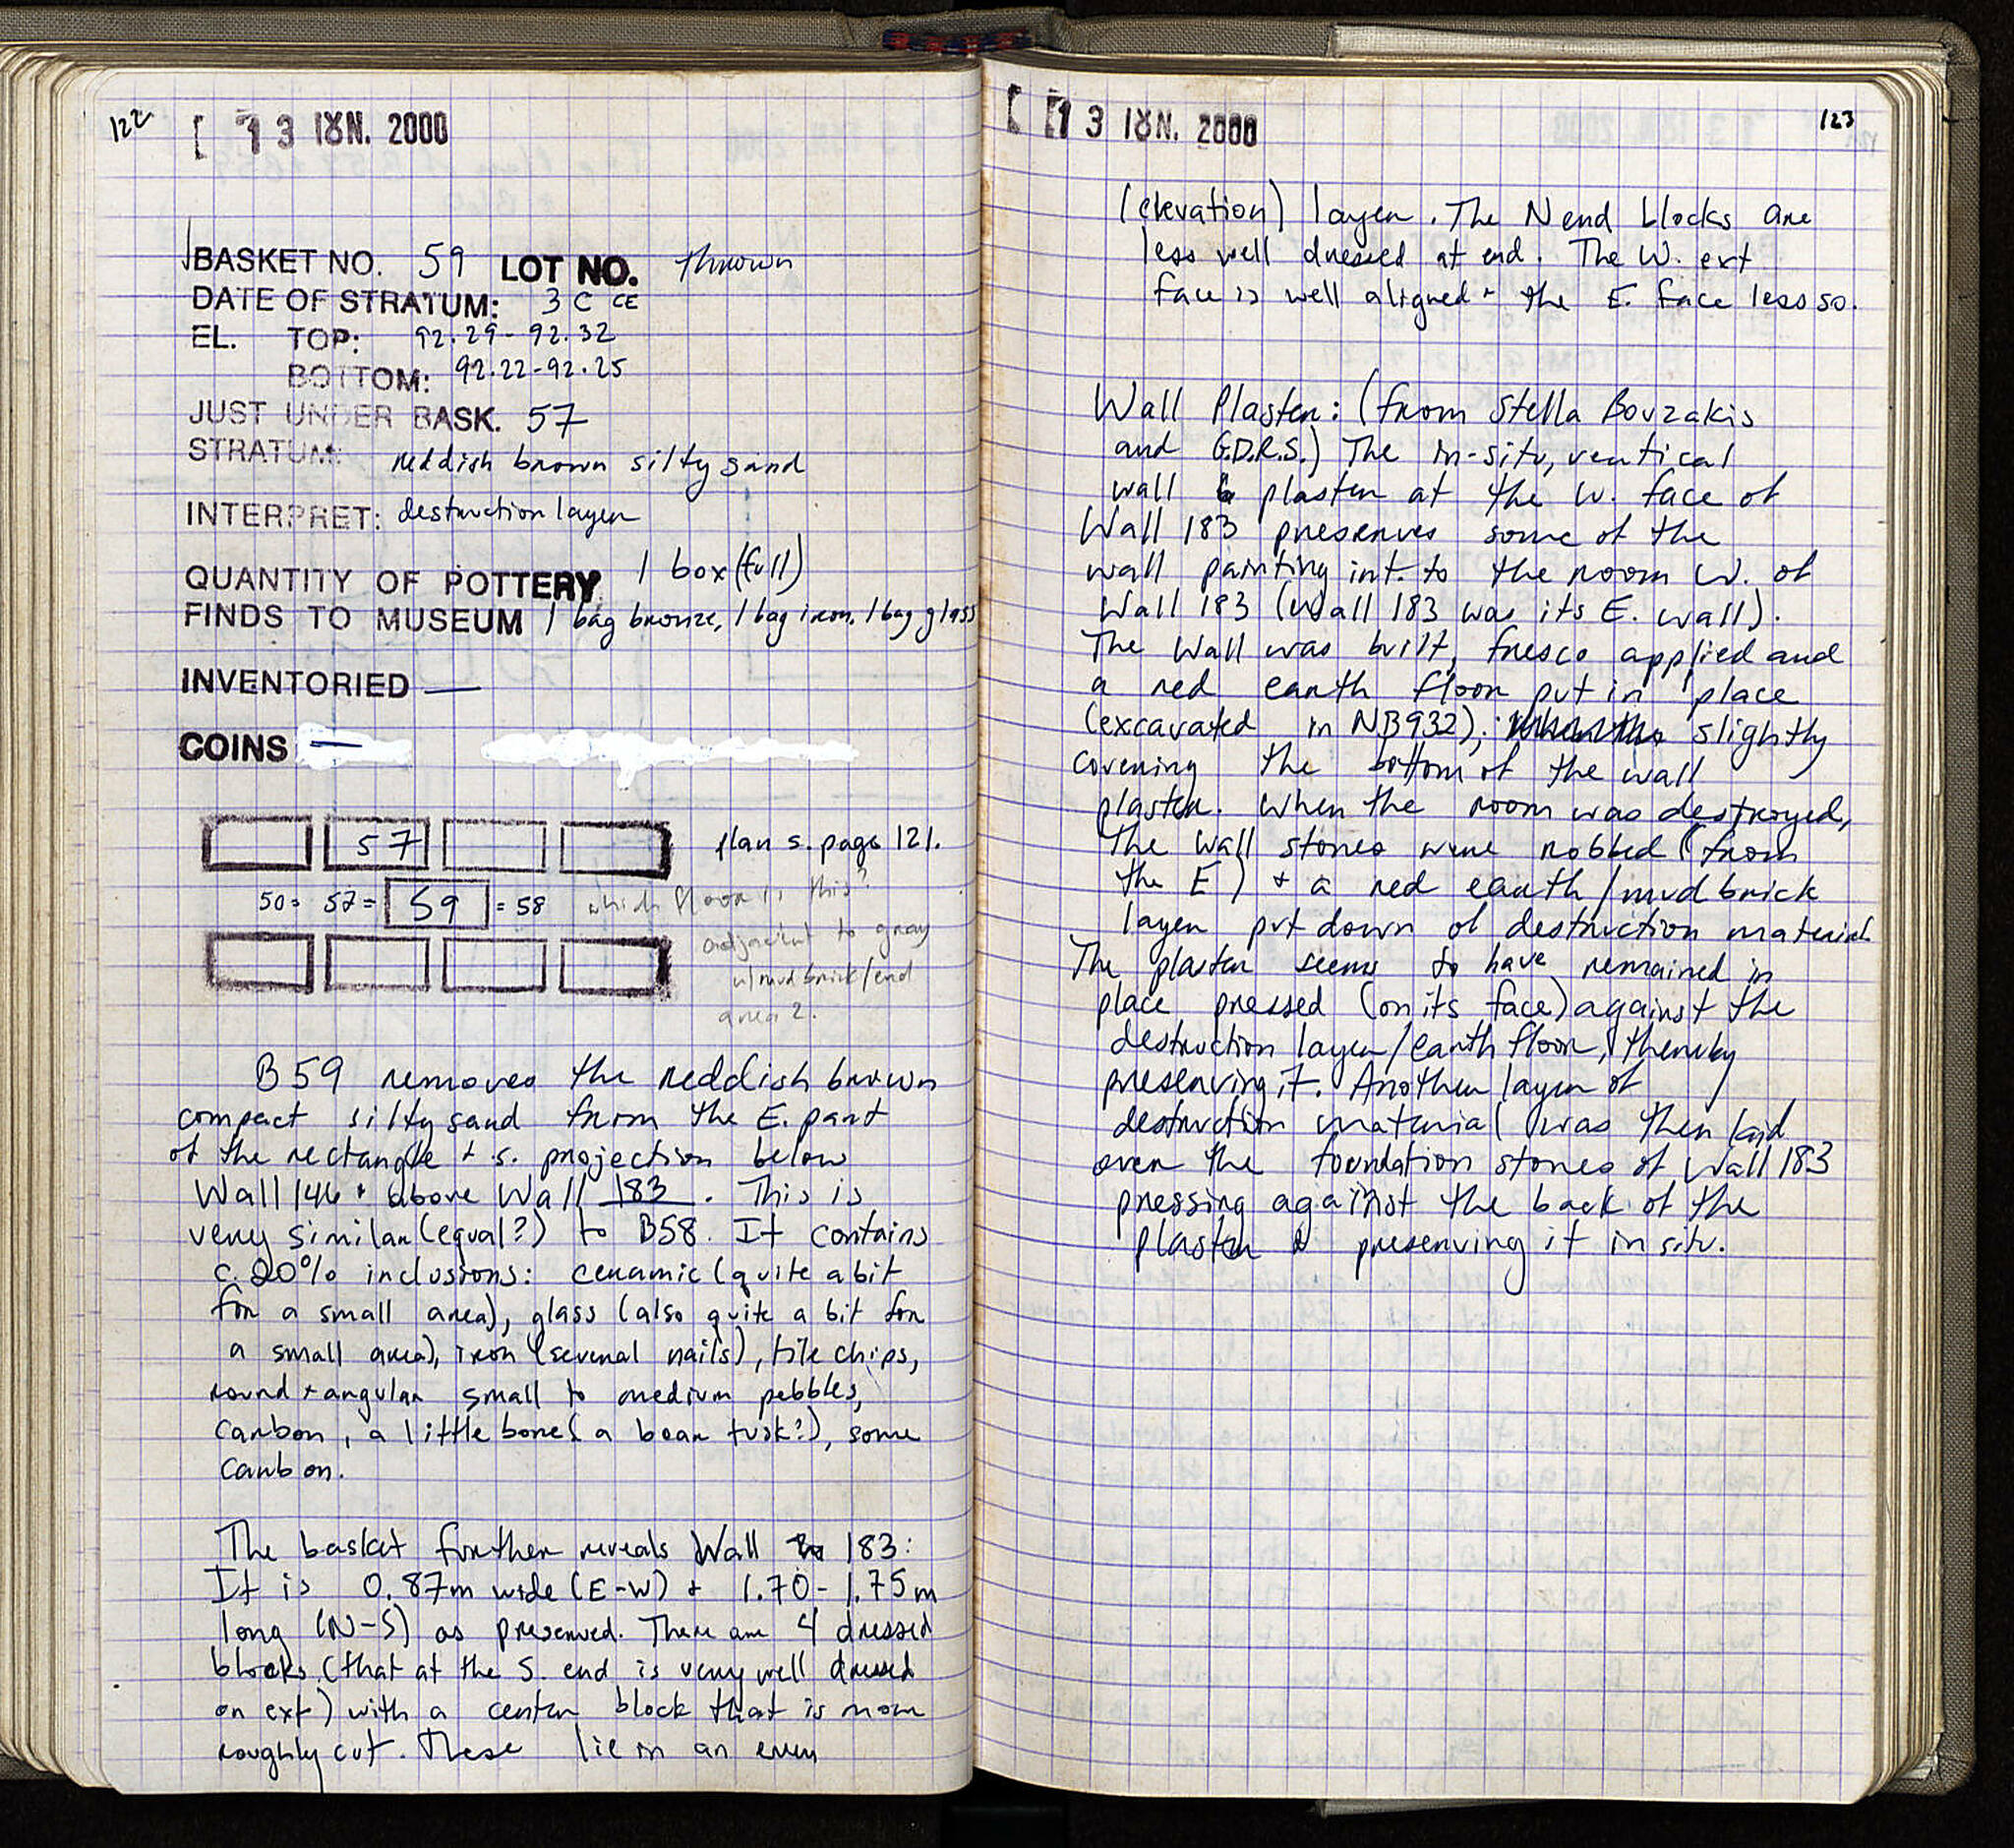 122
13 ΙΟΥΝ. 2000
BASKET NO. 59 LOT NO. thrown
DATE OF STRATUM: 3 C CE
EL. TOP: 92.29-92.32
BOTTOM: 92.22-92.25
JUST UNDER BASK. 57
STRATUM: reddish brown silty sand
INTERPRET: destruction layer
QUANTITY OF POTTERY 1 box (full)
FINDS TO MUSEUM 1 bag bronze, 1 bag iron, 1 bag glass
INVENTORIED —
COINS —
57
plan s. page 121.
50= 52= 59 = 58
which floor is this?
adjacent to gray
w/mud brick/end
area 2.
B59 removes the reddish brown
compact silty sand from the E. part
of the rectangle + s. projection below
Wall 146 + above Wall 183. This is
very similar (equal?) to B58. It contains
c. 20% inclusions: ceramic (quite a bit
for a small area), glass (also quite a bit for
a small area), iron (several nails), tile chips,
round + angular small to medium pebbles,
carbon, a little bone (a boar tusk?), some
carbon.
The basket further reveals Wall 183:
It is 0.87m wide (E-W) + 1.70-1.75m
long (N-S) as preserved. There are 4 dressed
blocks (that at the S. end is very well dressed
on ext) with a center block that is more
roughly cut. These lie in an even
13 ΙΟΥΝ. 2000
123
(elevation) layer. The N end blocks are
less well dressed at end. The W. ext
face is well aligned + the E. face less so.
Wall Plaster: (from Stella Bouzakis
and G.D.R.S.) The in-situ, vertical
wall plaster at the W. face of
Wall 183 preserves some of the
wall painting int. to the room W. of
Wall 183 (Wall 183 was its E. wall).
The Wall was built, fresco applied and
a red earth floor put in place
(excavated in NB932); slightly
covering the bottom of the wall
plaster. When the room was destroyed,
the wall stones were robbed (from
the E) + a red earth/mud brick
layer put down of destruction material.
The plaster seems to have remained in
place pressed (on its face) against the
destruction layer/earth floor, thereby
preserving it. Another layer of
destruction material was then laid
over the foundation stones of Wall 183
pressing against the back of the
plaster & preserving it in situ.